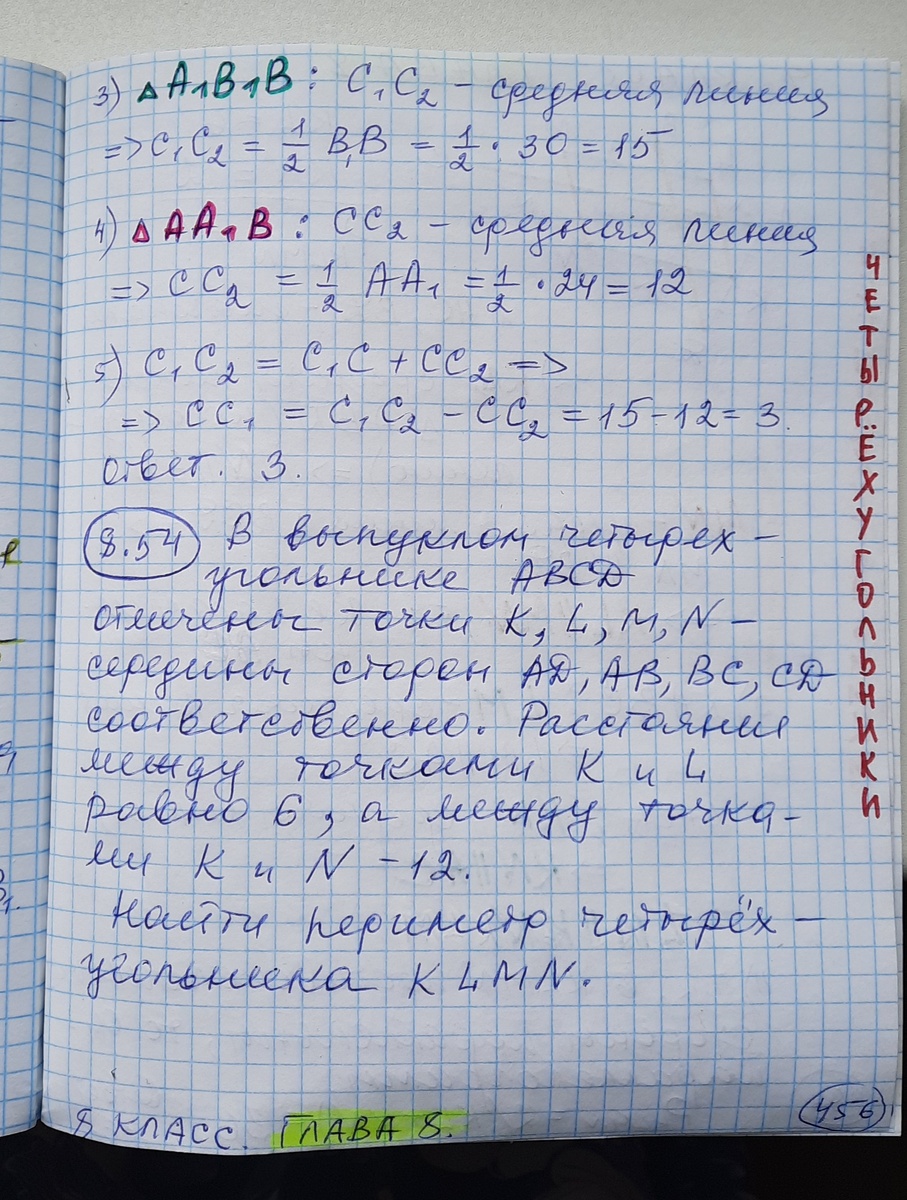 3) △A₁B₁B : C₁C₂ – средняя линия
=> C₁C₂ = 1/2 B₁B = 1/2 · 30 = 15
4) △AA₁B : CC₂ – средняя линия
=> CC₂ = 1/2 AA₁ = 1/2 · 24 = 12
5) C₁C₂ = C₁C + CC₂ =>
=> CC₁ = C₁C₂ – CC₂ = 15 – 12 = 3.
Ответ. 3.
8.54 В выпуклом четырех-
угольнике ABCD
отмечены точки K, L, M, N –
середины сторон AD, AB, BC, CD
соответственно. Расстояние
между точками K и L
равно 6, а между точка-
ми K и N – 12.
Найти периметр четырёх-
угольника KLMN.
8 КЛАСС. ГЛАВА 8.
456
ЧЕТЫРЁХУГОЛЬНИКИ